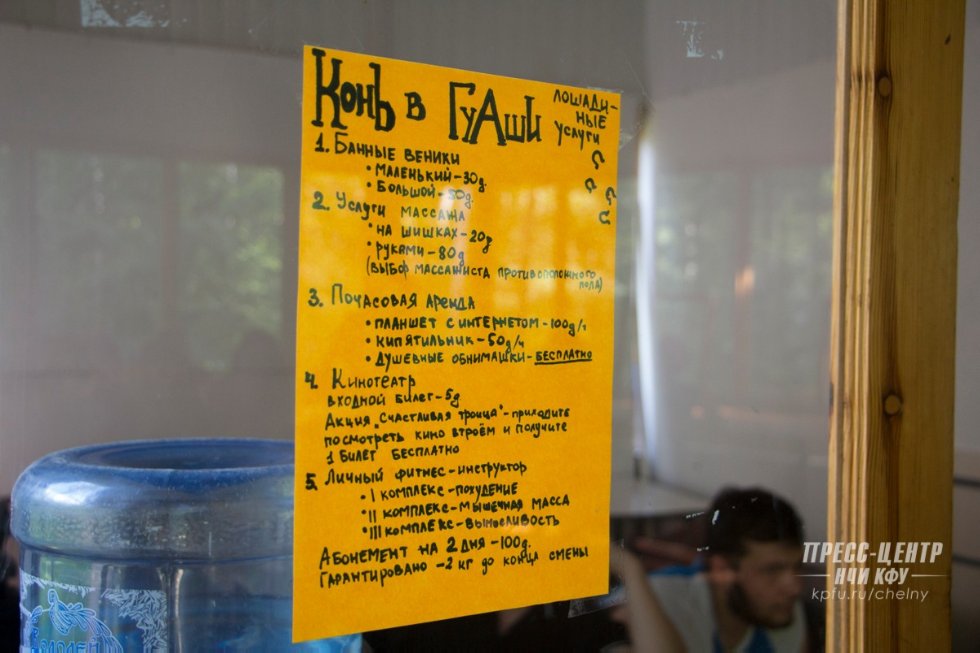 Конь в Гуаши
лошади-
ные
услуги
1. Банные веники
• маленький - 30д.
• Большой - 50д.
2. Услуги массажа
• на шишках - 20д
• руками - 80д
(выбор массажиста противоположного
пола)
3. Почасовая аренда
• планшет с интернетом - 100д/ч
• кипятильник - 50д/ч
• душевные обнимашки - бесплатно
4. Кинотеатр
входной билет - 5д
Акция "Счастливая троица" - приходите
посмотреть кино втроём и получите
1 билет бесплатно
5. Личный фитнес-инструктор
• I комплекс - похудение
• II комплекс - мышечная масса
• III комплекс - выносливость
Абонемент на 2 дня - 100д.
Гарантировано - 2 кг до конца смены
ПРЕСС-ЦЕНТР
НЧИ КФУ
kpfu.ru/chelny